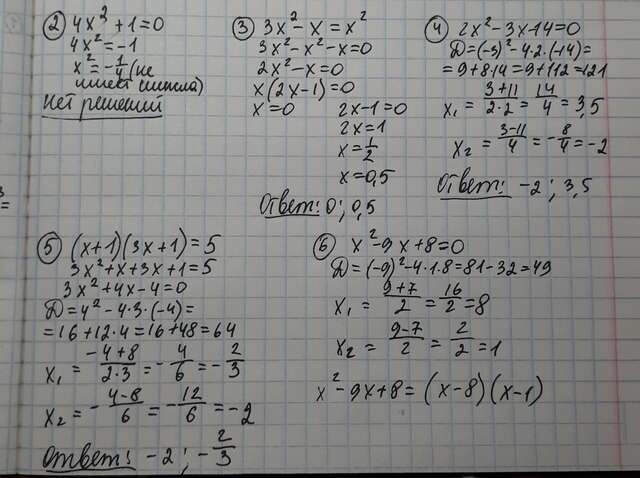 ② 4x² + 1 = 0
4x² = -1
x² = -1/4 (не
имеет смысла)
Нет решений
③ 3x² - x = x²
3x² - x² - x = 0
2x² - x = 0
x(2x-1) = 0
x = 0 2x - 1 = 0
2x = 1
x = 1/2
x = 0,5
Ответ: 0; 0,5
④ 2x² - 3x - 14 = 0
D = (-3)² - 4·2·(-14) =
= 9 + 8·14 = 9 + 112 = 121
x₁ = (3+11)/(2·2) = 14/4 = 3,5
x₂ = (3-11)/4 = -8/4 = -2
Ответ: -2; 3,5
⑤ (x+1)(3x+1) = 5
3x² + x + 3x + 1 = 5
3x² + 4x - 4 = 0
D = 4² - 4·3·(-4) =
= 16 + 12·4 = 16 + 48 = 64
x₁ = (-4+8)/(2·3) = -4/6 = -2/3
x₂ = -(4-8)/6 = -12/6 = -2
Ответ: -2; -2/3
⑥ x² - 9x + 8 = 0
D = (-9)² - 4·1·8 = 81 - 32 = 49
x₁ = (9+7)/2 = 16/2 = 8
x₂ = (9-7)/2 = 2/2 = 1
x² - 9x + 8 = (x-8)(x-1)